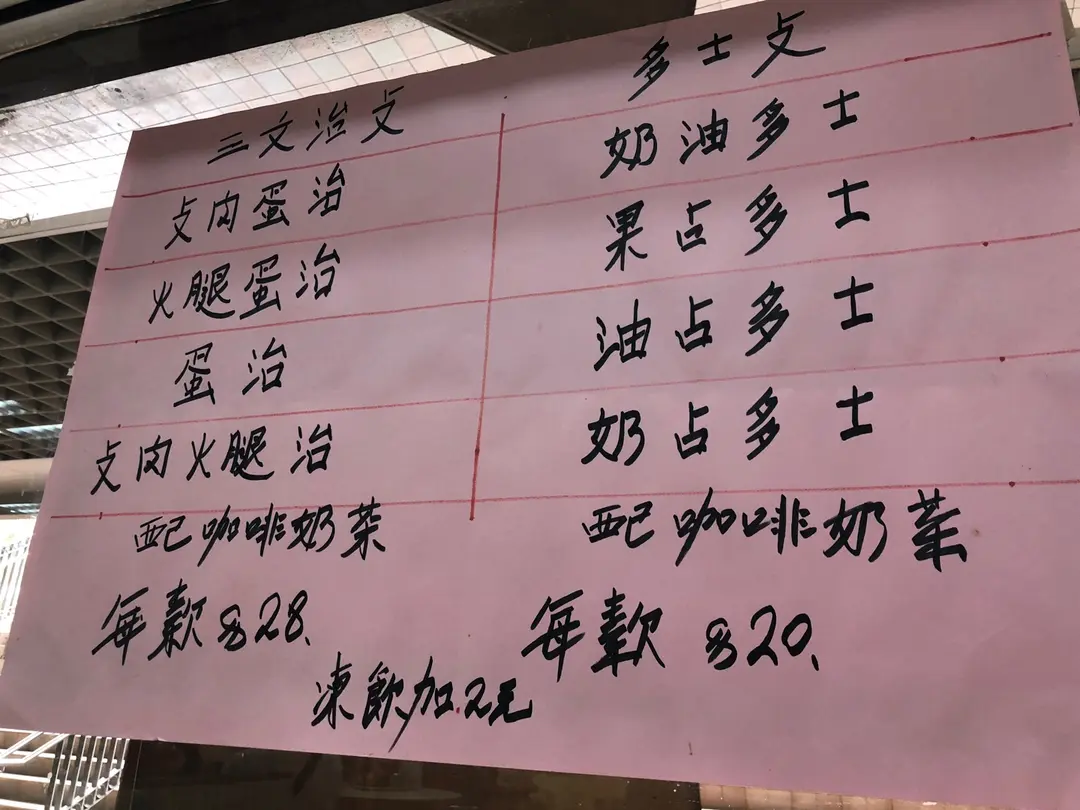 三文治歺
歺肉蛋治
火腿蛋治
蛋治
歺肉火腿治
配咖啡奶茶
每款$28、
多士歺
奶油多士
果占多士
油占多士
奶占多士
配咖啡奶茶
每款$20、
凍飲加2元